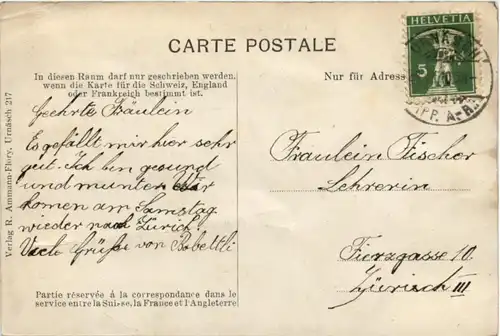 CARTE POSTALE
HELVETIA
5
(PR. A.-R.)
In diesen Raum darf nur geschrieben werden,
wenn die Karte für die Schweiz, England
oder Frankreich bestimmt ist.
Nur für Adresse
Geehrte Fräulein
Es gefällt mir hier sehr
gut. Ich bin gesund
und munter. Wir
komen am Samstag
wieder nach Zürich!
Viele Grüße von Bobettli
Fraulein Fischer
Lehrerin
Fierzgasse 10
Zürich III
Partie réservée à la correspondance dans le
service entre la Suisse, la France et l'Angleterre.
Verlag R. Ammann-Flory, Urnäsch 217